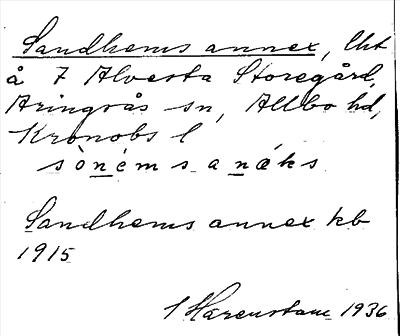 Sandhems annex, lht
å 7 Alvesta Storegård,
Aringsås sn, Allbo hd,
Kronobs l
sònéms anáks
Sandhems annex kb
1915
Harenstam 1936